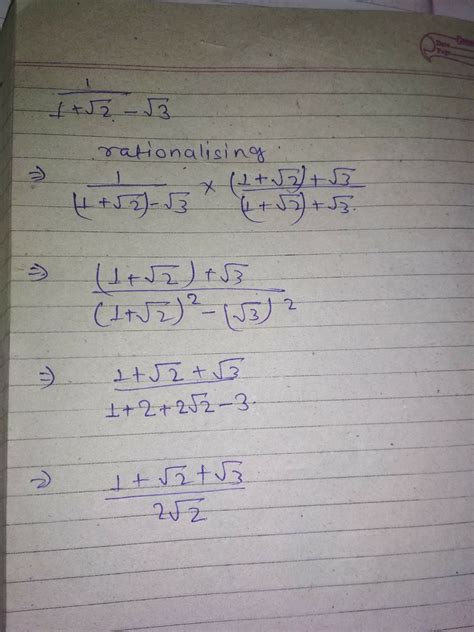 Date
Page
1
1+√2 - √3
rationalising
⇒ 1/((1+√2)-√3) × ((1+√2)+√3)/((1+√2)+√3)
⇒ ((1+√2)+√3)/((1+√2)² - (√3)²)
⇒ (1+√2+√3)/(1+2+2√2-3)
⇒ (1+√2+√3)/(2√2)